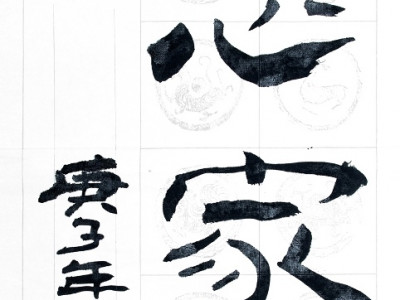 家
庚子年